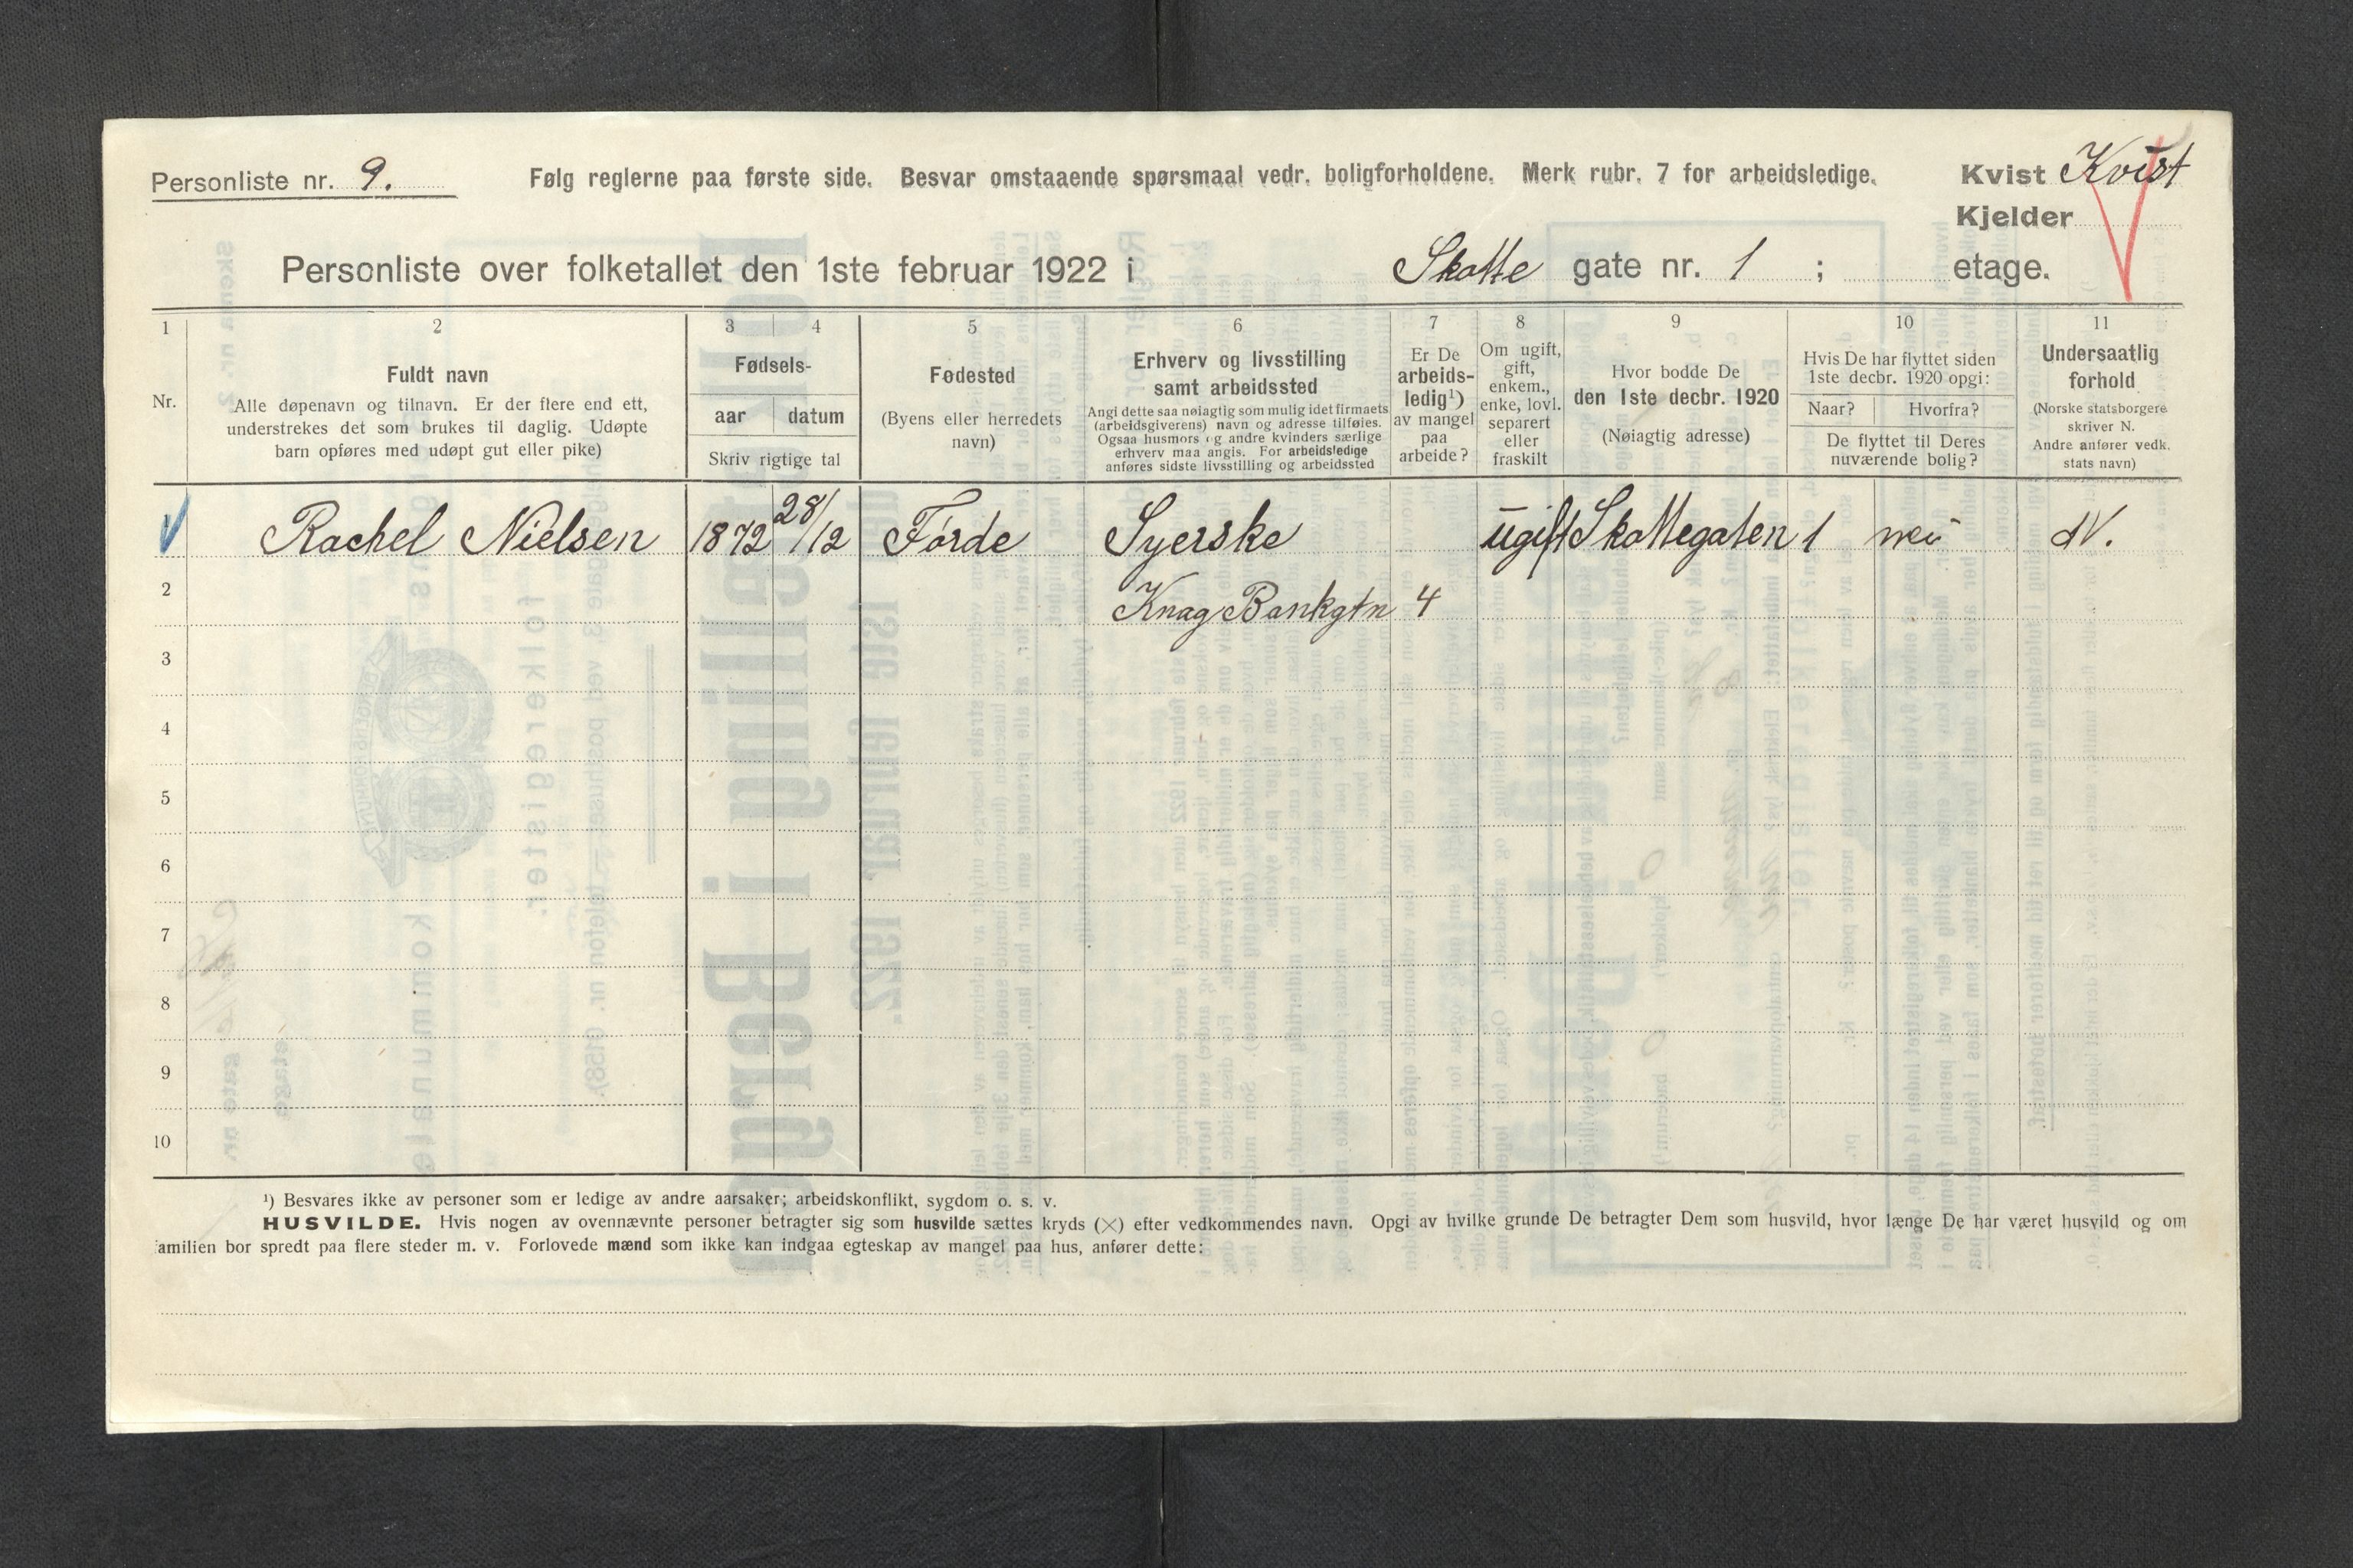 Personliste nr. 9.
Følg reglerne paa første side. Besvar omstaaende spørsmaal vedr. boligforholdene. Merk rubr. 7 for arbeidsledige.
Kvist Kvist
Kjelder
Personliste over folketallet den 1ste februar 1922 i Skotte gate nr. 1 ; etage.
1 2 3 4 5 6 7 8 9 10 11
Nr.
Fuldt navn
Alle døpenavn og tilnavn. Er der flere end ett,
understrekes det som brukes til daglig. Udøpte
barn opføres med udøpt gut eller pike)
Fødsels-
aar datum
Skriv rigtige tal
Fødested
(Byens eller herredets
navn)
Erhverv og livsstilling
samt arbeidssted
Angi dette saa nøiagtig som mulig idet firmaets
(arbeidsgiverens) navn og adresse tilføies.
Ogsaa husmors og andre kvinders særlige
erhverv maa angis. For arbeidsledige
anføres sidste livsstilling og arbeidssted
Er De
arbeids-
ledig¹)
av mangel
paa
arbeide?
Om ugift,
gift,
enkem.,
enke, lovl.
separert
eller
fraskilt
Hvor bodde De
den 1ste decbr. 1920
(Nøiagtig adresse)
Hvis De har flyttet siden
1ste decbr. 1920 opgi:
Naar? Hvorfra?
De flyttet til Deres
nuværende bolig?
Undersaatlig
forhold
(Norske statsborgere
skriver N.
Andre anfører vedk.
stats navn)
Rachel Nielsen 1872 28/12 Førde Syerske ugift Skottegaten 1 nei N.
2 Knag Bankgtn 4
3
4
5
6
7
8
9
10
¹) Besvares ikke av personer som er ledige av andre aarsaker; arbeidskonflikt, sygdom o. s. v.
HUSVILDE. Hvis nogen av ovennævnte personer betragter sig som husvilde sættes kryds (×) efter vedkommendes navn. Opgi av hvilke grunde De betragter Dem som husvild, hvor længe De har været husvild og om
amilien bor spredt paa flere steder m. v. Forlovede mænd som ikke kan indgaa egteskap av mangel paa hus, anfører dette: